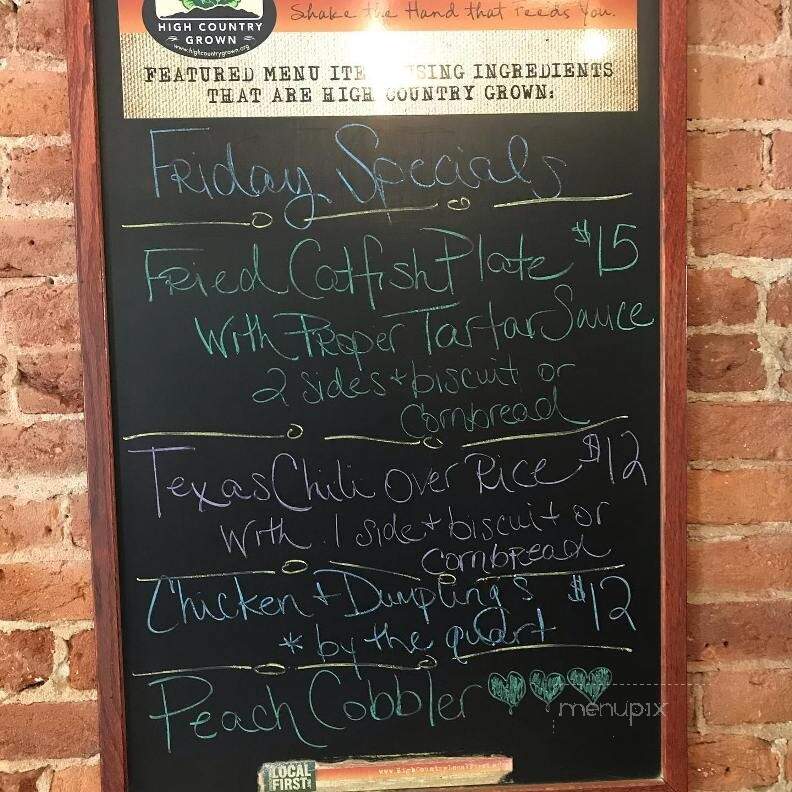 Shake the Hand that Feeds You.
HIGH COUNTRY
GROWN
www.highcountrygrown.org
FEATURED MENU ITE USING INGREDIENTS
THAT ARE HIGH COUNTRY GROWN:
Friday Specials
Fried Catfish Plate $15
With Proper Tartar Sauce
2 sides + biscuit or
Cornbread
Texas Chili over Rice $12
With 1 side + biscuit or
cornbread
Chicken + Dumplings $12
* by the quart
Peach Cobbler
menupix
LOCAL
FIRST
www.HighCountryLocalFirst.